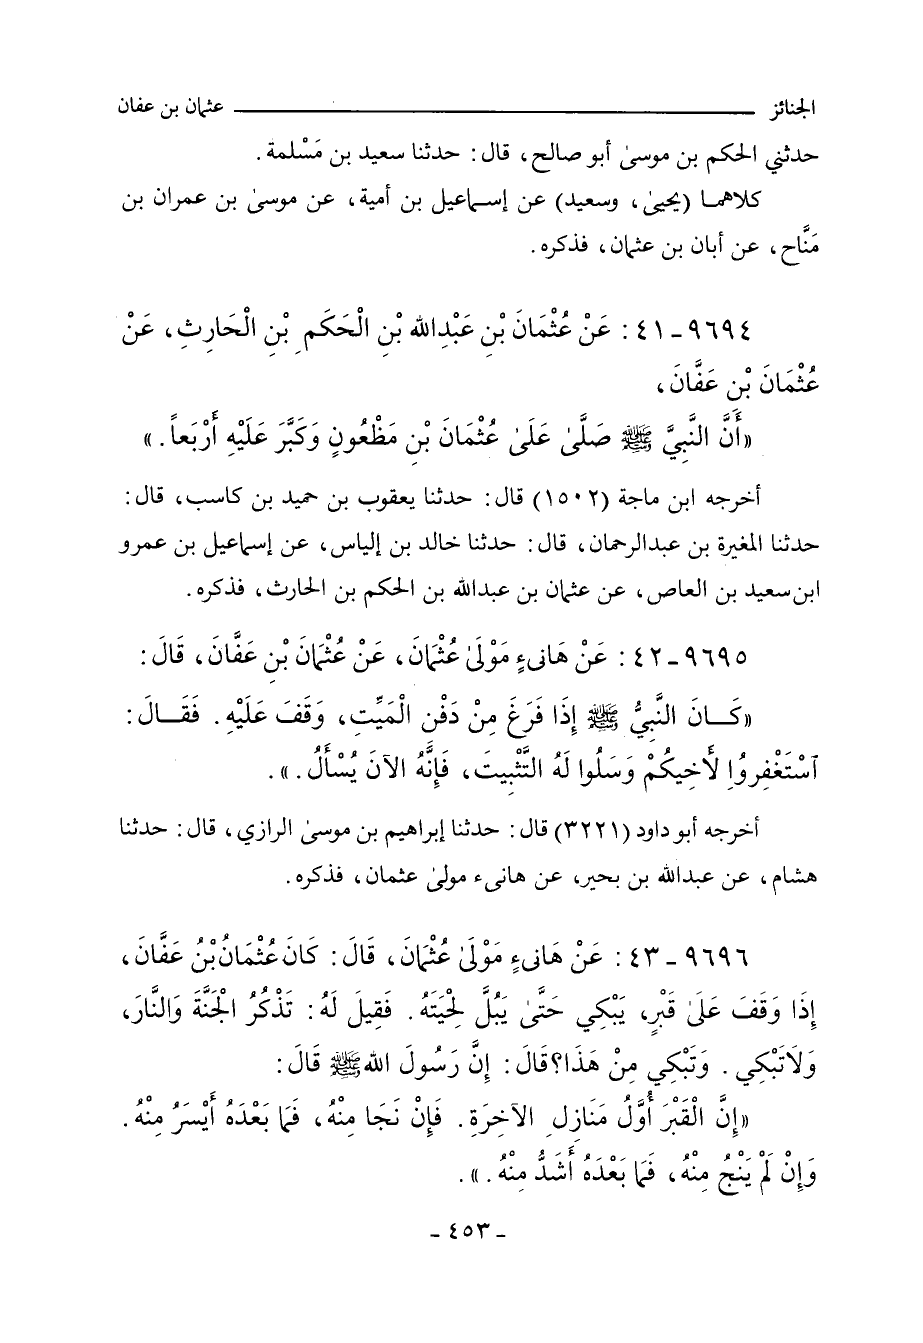 الجنائز ــــــــــــــــــــ عثمان بن عفان
حدثني الحكم بن موسىٰ أبو صالح، قال: حدثنا سعيد بن مَسْلمة.
كلاهما (يحيىٰ، وسعيد) عن إسماعيل بن أمية، عن موسىٰ بن عمران بن
مَنَّاح، عن أبان بن عثمان، فذكره.
٩٦٩٤ - ٤١ : عَنْ عُثْمَانَ بْنِ عَبْدِالله بْنِ الْحَكَمِ بْنِ الْحَارِثِ، عَنْ
عُثْمَانَ بْنِ عَفَّانَ،
«أَنَّ النَّبِيَّ ﷺ صَلَّىٰ عَلَىٰ عُثْمَانَ بْنِ مَظْعُونٍ وَكَبَّرَ عَلَيْهِ أَرْبَعاً.»
أخرجه ابن ماجة (١٥٠٢) قال: حدثنا يعقوب بن حميد بن كاسب، قال:
حدثنا المغيرة بن عبدالرحمان، قال: حدثنا خالد بن إلياس، عن إسماعيل بن عمرو
ابن سعيد بن العاص، عن عثمان بن عبدالله بن الحكم بن الحارث، فذكره.
٩٦٩٥ - ٤٢ : عَنْ هَانىءٍ مَوْلَىٰ عُثْمَانَ، عَنْ عُثْمَانَ بْنِ عَفَّانَ، قَالَ:
«كَــانَ النَّبِيُّ ﷺ إِذَا فَرَغَ مِنْ دَفْنِ الْمَيِّتِ، وَقَفَ عَلَيْهِ. فَقَــالَ:
آسْتَغْفِرُوا لأَخِيكُمْ وَسَلُوا لَهُ التَّثْبِيتَ، فَإِنَّهُ الآنَ يُسْأَلُ.».
أخرجه أبو داود (٣٢٢١) قال: حدثنا إبراهيم بن موسىٰ الرازي، قال: حدثنا
هشام، عن عبدالله بن بحير، عن هانىء مولىٰ عثمان، فذكره.
٩٦٩٦ - ٤٣ : عَنْ هَانىءٍ مَوْلَىٰ عُثْمَانَ، قَالَ: كَانَ عُثْمَانُ بْنُ عَفَّانَ،
إِذَا وَقَفَ عَلَىٰ قَبْرٍ، يَبْكِي حَتَّىٰ يَبُلَّ لِحْيَتَهُ. فَقِيلَ لَهُ: تَذْكُرُ الْجَنَّةَ وَالنَّارَ،
وَلاَتَبْكِي. وَتَبْكِي مِنْ هَذَا؟ قَالَ: إِنَّ رَسُولَ الله ﷺ قَالَ:
«إِنَّ الْقَبْرَ أَوَّلُ مَنَازِلِ الآخِرَةِ. فَإِنْ نَجَا مِنْهُ، فَمَا بَعْدَهُ أَيْسَرُ مِنْهُ.
وَإِنْ لَمْ يَنْجُ مِنْهُ، فَمَا بَعْدَهُ أَشَدُّ مِنْهُ.».
- ٤٥٣ -